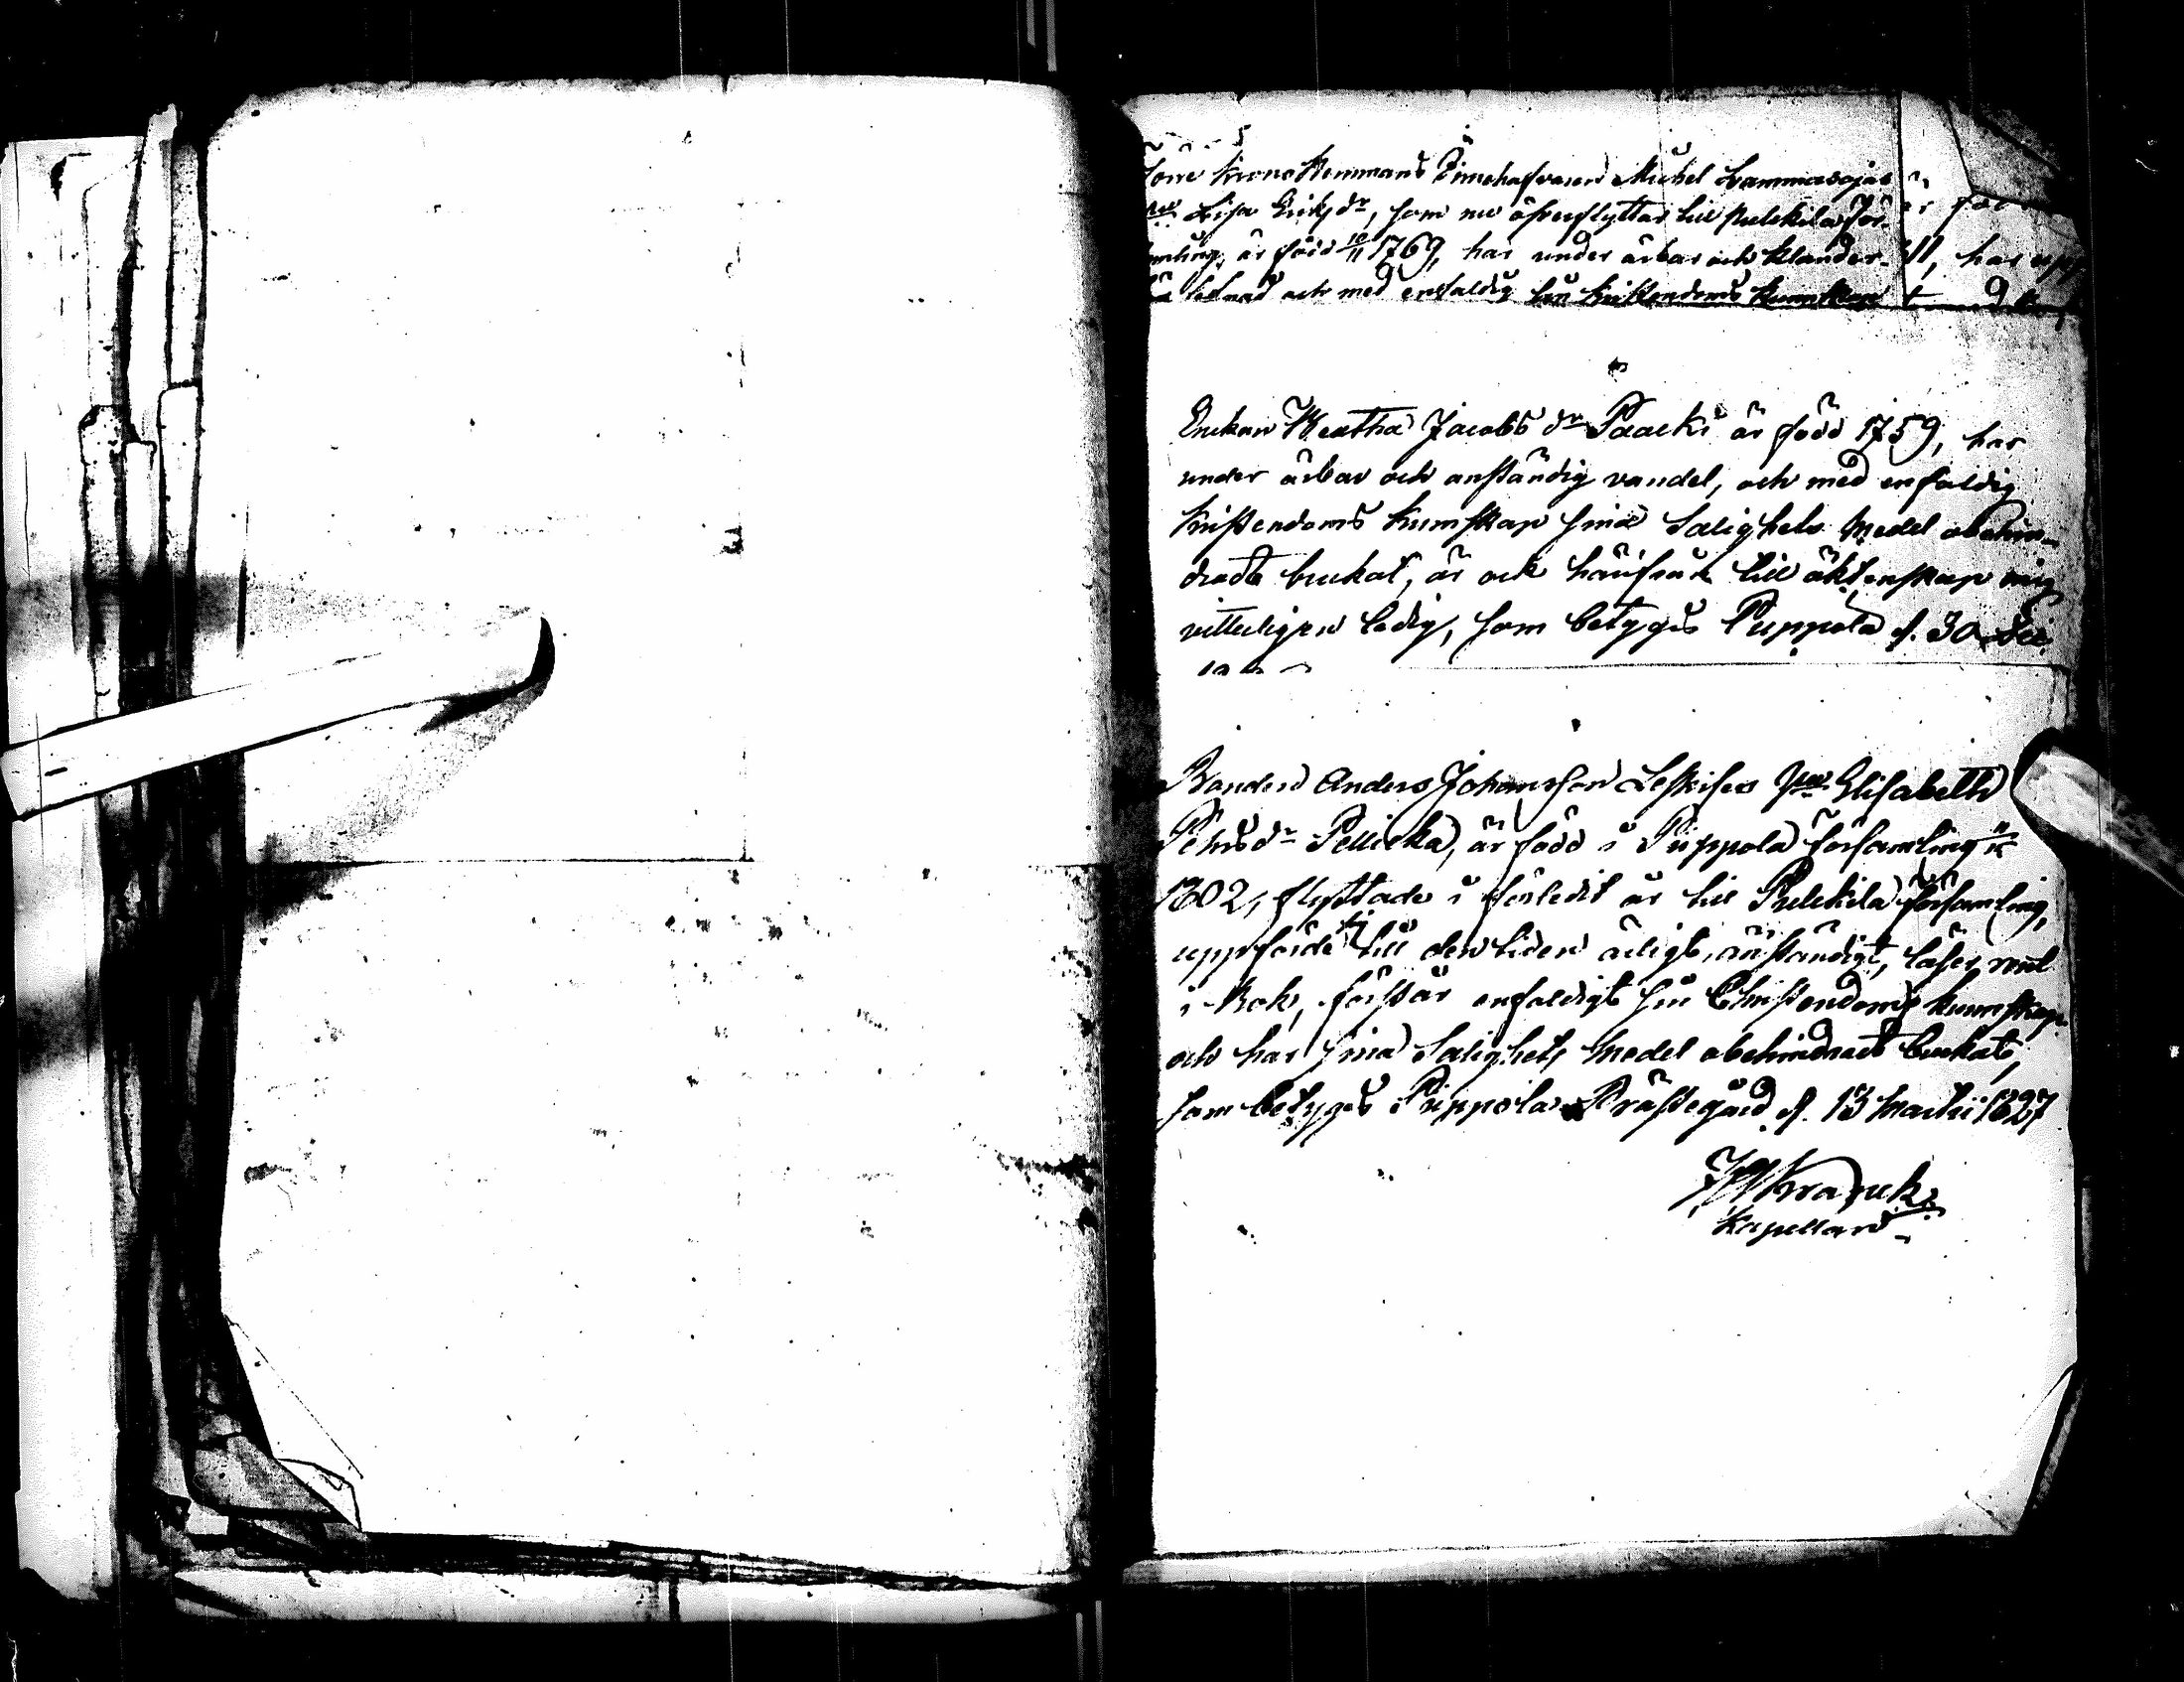 Förre Krono Hemmans Innehafvaren Michel Lammasojas
Lisa Eriksdr, som nu öfverflyttar till Pulkkila för-
samling, är född 10/11 1769, har under ärbar och klander-
lefnad och med enfaldig Kristendoms Kunskap
är för
har upp
Enkan Martha Jacobsdr Paacki är född 1759, har
under ärbar och anständig vandel, och med enfaldig
Kristendoms Kunskap sina Salighets Medel obehin-
dradt brukat, är ock härifrån till äktenskap mig
vitterligen ledig, som betygas Pippola d. 30 Dec.
Bonden Anders Johansson Leskises Elisabeth
Petersdr Pellicka, är född i Pippola församling
1802, flyttade i förledit år till Pulkkila församling,
uppförde sig till den tiden ärligt, anständigt, läser rent
i Bok, förstår enfaldigt sin Christendoms kunskap
och har sina Salighets Medel obehindradt brukat,
som betygas Pippola Prästegård d. 13 Martii 1827
Kapellan